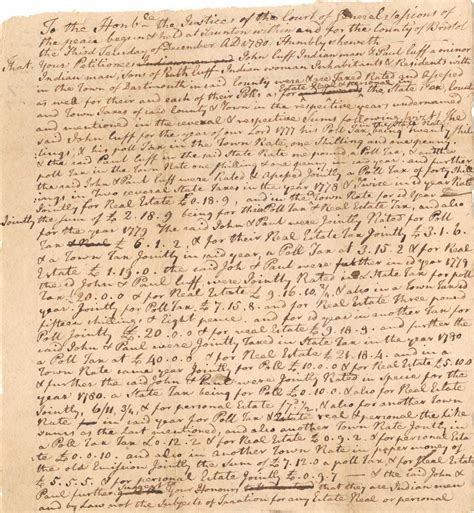 To the Honble the Justices of the Court of General Sessions of
the peace begun & held at Taunton within and for the County of Bristol
the Third Tuesday of December AD 1780. Humbly sheweth
That Your Petitioners John Cuff Indian man & Paul Cuff a minor
Indian man, Sons of Ruth Cuff Indian woman Inhabitants & Residents with
in the Town of Dartmouth in said County were Rated and Assessed
as well for their and each of their Polls & Estate Real & personal the State Tax
and Town Taxes of said County & Town in the respective years undernamed
and mentioned in the several & respective Sums following The
said John Cuff for the year of our Lord 1777 his Poll Tax being twenty shil
lings & his poll Tax in the Town Rate, one Shilling and
& the said Paul Cuff in the said State Rate one pound a Poll Tax, & in the
poll Tax in the Town Rate one shilling in said year and further
the said John & Paul Cuff were Rated & Assessed Jointly a Poll Tax of forty Shill
ings in the several State Taxes in the year 1778 & in said year
Jointly for Real Estate £0.18.9, and in the Town Rate for said year
Jointly the Sum of £2.18.9 being for their Poll Tax & Real Estate Tax, and also
for the year 1779 The said John & Paul were Jointly Rated for Poll
Tax £6.1.2, & for their Real Estate Tax Jointly £3.1.6
& a Town Tax Jointly in said year, a Poll Tax at 3.15.2 & for Real
Estate £1.19.0. the said John & Paul were further in said 1779
the said John & Paul Cuff, were Jointly Rated in State Tax for poll
Tax 20.0.0 & for Real Estate £9.16.10¾, & also in a Town Tax in said
year Jointly for Poll Tax £7.15.8 and for Real Estate Three pound
fifteen shillings & Eight pence, and for said year in another Town Tax for
Poll Jointly £20.9.0 & for real Estate £9.18.9. and further the
said John & Paul were Jointly Taxed in State Tax in the year 1780
a Poll Tax at £40.0.0 & for Real Estate £21.18.4. and in a
Town Rate same year Jointly for Poll £10.0.0 & for Real Estate £5.10
& further the said John & Paul were Jointly Rated in specie for the
year 1780. a State Tax being for Poll 0.10.0 & also for Real Estate
Jointly, 6/11¾, & for personal Estate & also for another Town
Rate for said year Poll Tax & real & personal the like
sums as the last mentioned and also another Town Rate Jointly in
a Poll Tax £0.12.2 & for Real Estate £0.9.2. & for personal Esta
te £0.10. and also in another Town Rate in paper money of
the old Emission Jointly the Sum of £7.12.0 a poll tax & for Real Estate
£5.5.5. & for personal Estate Jointly £0.9.7 & the said John &
Paul further Your Honours that they are Indian men
and by Law not the Subjects of Taxation for any Estate Real or personal